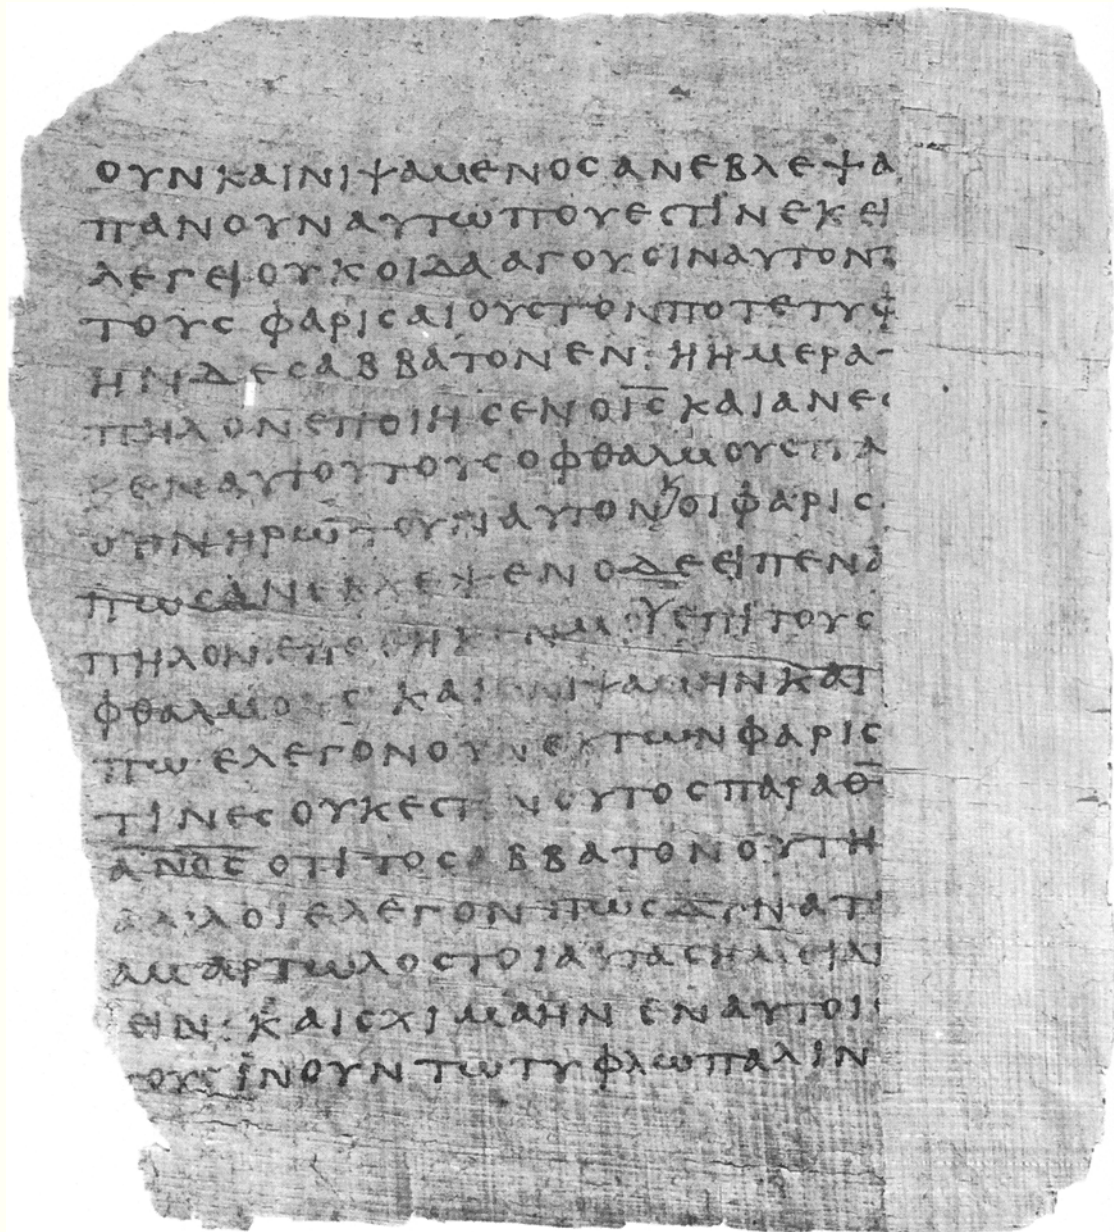 ουν και νιψαμενος ανεβλεψα
παν ουν αυτω που εστιν εκει
λεγει ουκ οιδα αγουσιν αυτον
τους φαρισαιους τον ποτε τυφ
ην δε σαββατον εν: η ημερα
πηλον εποιησεν ο ι̅ς̅ και ανε
ξεν αυτου τους οφθαλμους πα
ουν ηρωτ ουν αυτον κ οι φαρισ
πως ανεβλεψεν ο δε ειπεν α
πηλον μου επι τους
φθαλμους και ενιψαμην και
πω ελεγον ουν εκ των φαρισ
τινες ουκ εστιν ουτος παρα θ̅
α̅ν̅ο̅ς̅ οτι το σαββατον ου τη
αλλοι ελεγον πως δυνατ
αμαρτωλος τοιαυτα σημει
ειν: και σχιμα ην εν αυτοι
ουσιν ουν τω τυφλω παλιν